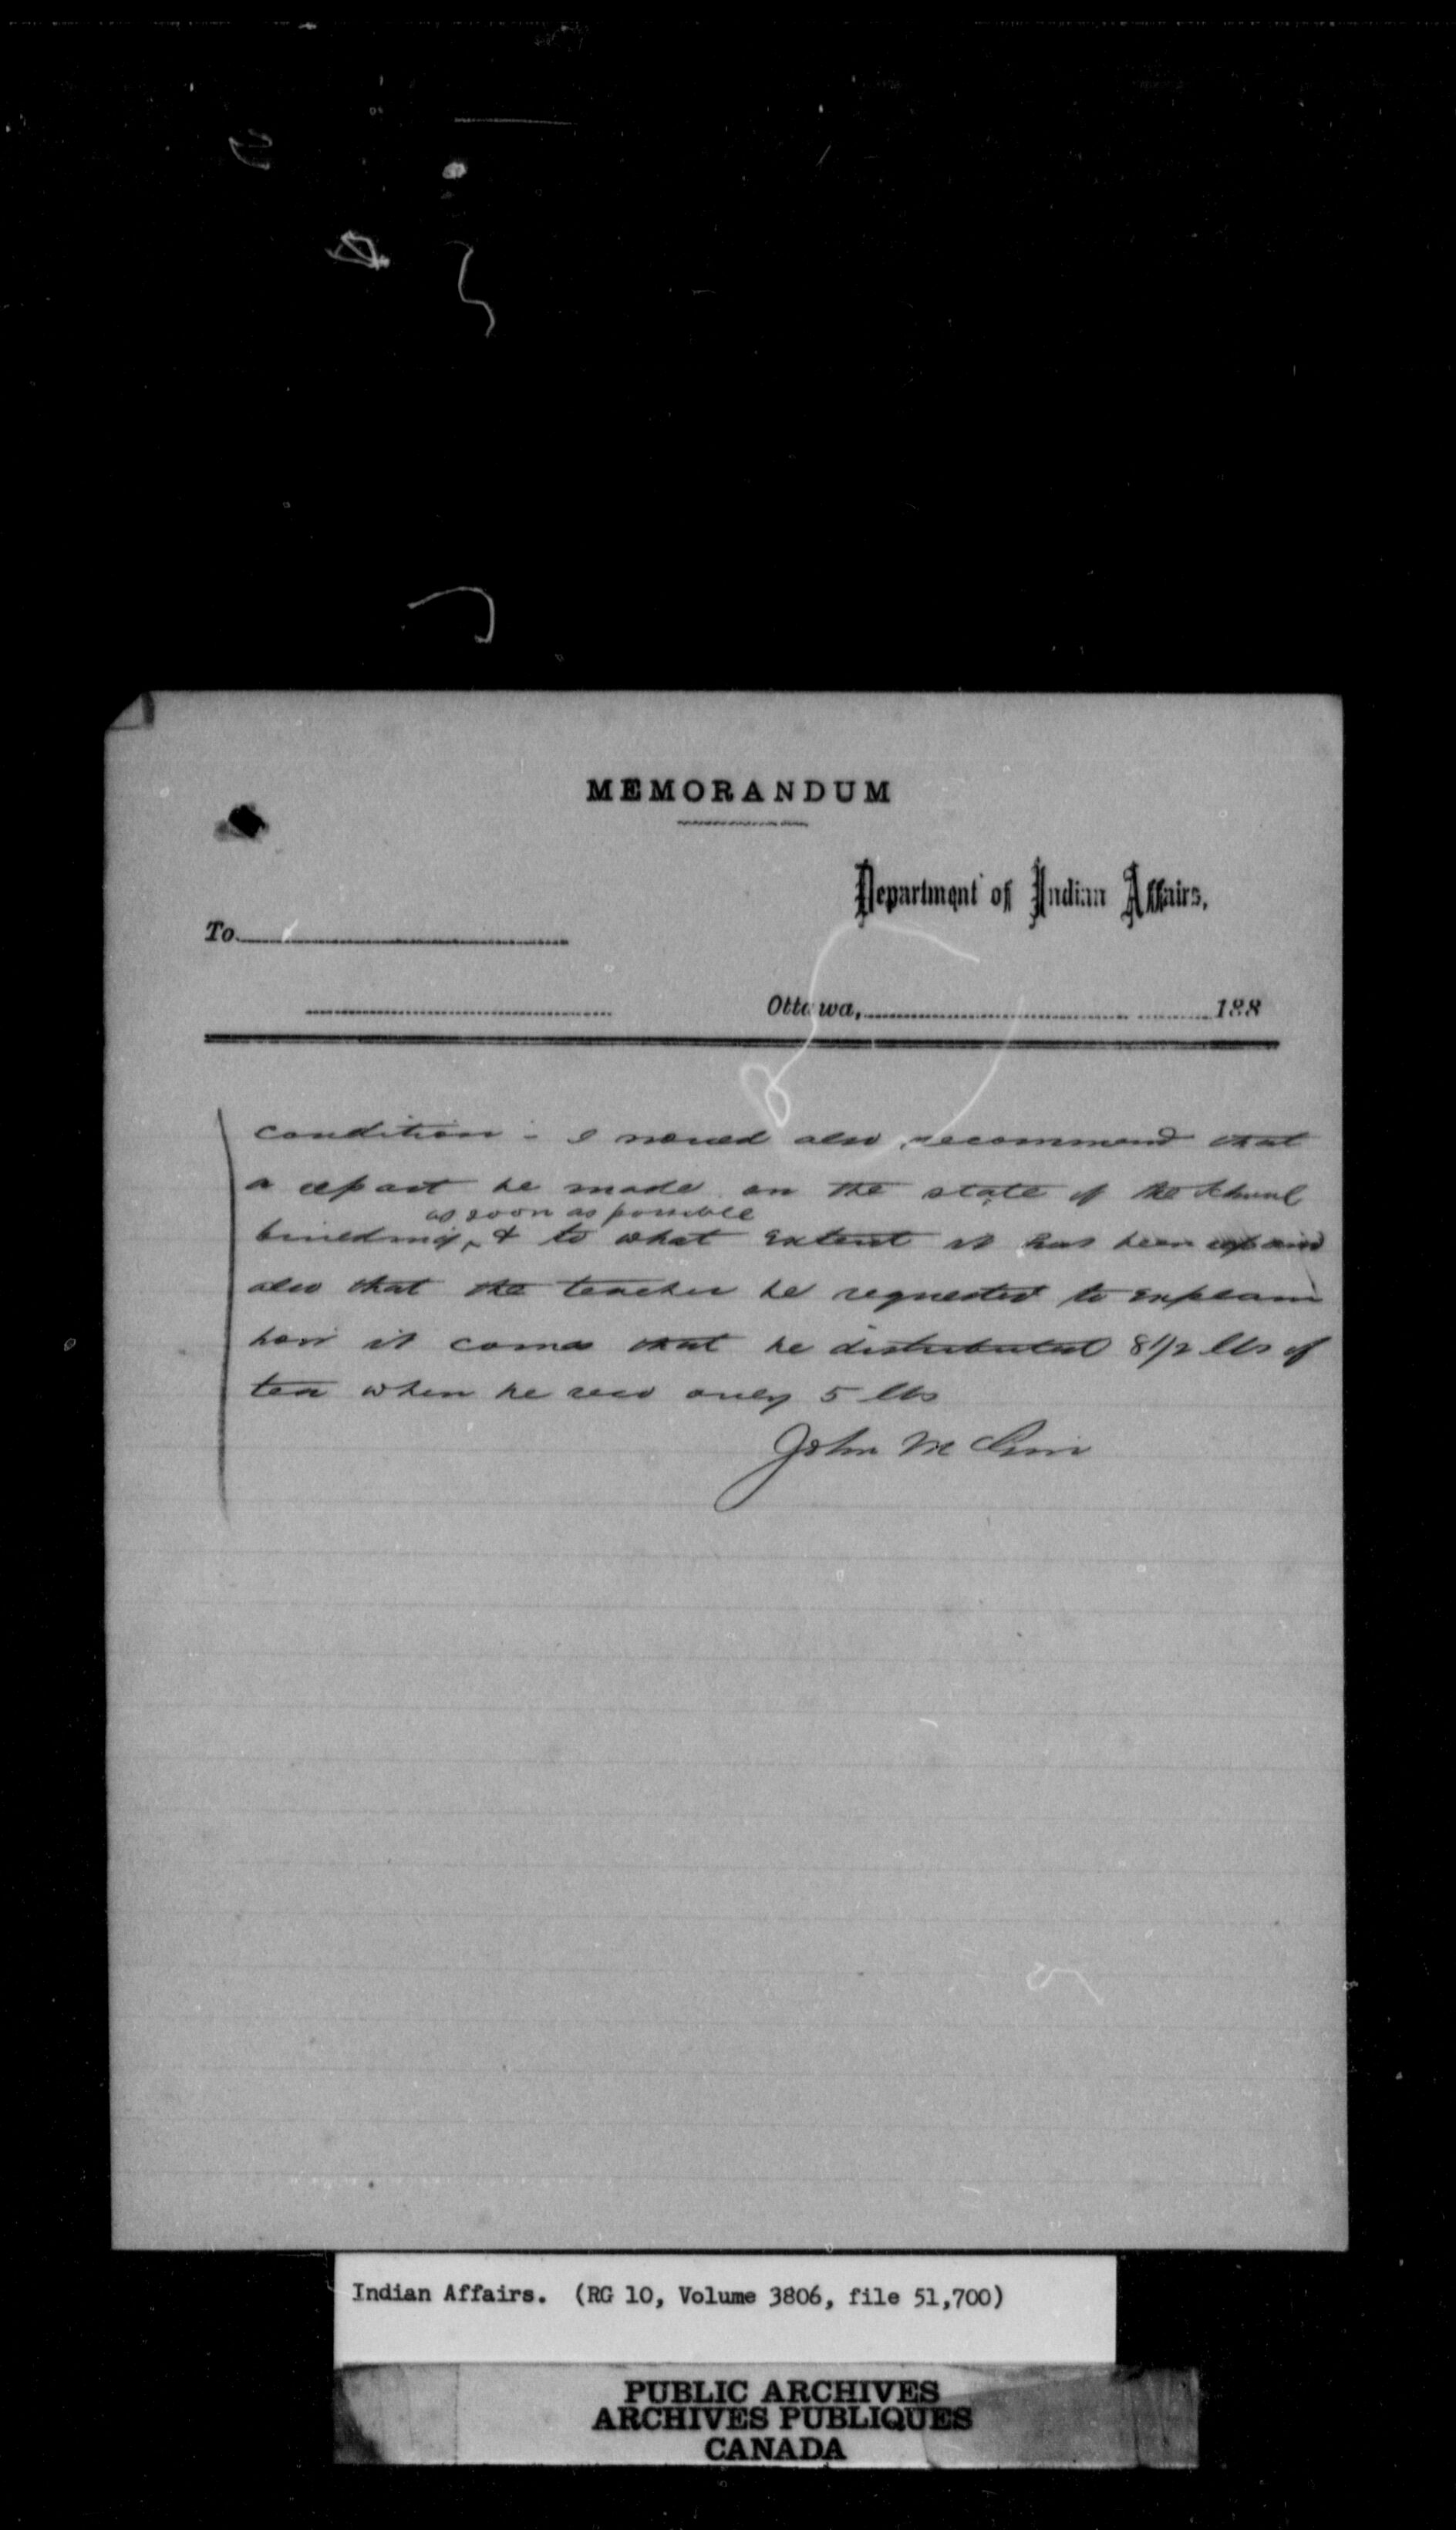 MEMORANDUM
Department of Indian Affairs.
To
Ottawa, 188
condition - I would also recommend that
a report be made on the state of the School
as soon as possible
building, & to what extent it has been repaired
also that the teacher be requested to explain
how it comes that he distributed 8 1/2 lbs of
tea when he recd only 5 lbs
John Mc
Indian Affairs. (RG 10, Volume 3806, file 51,700)
PUBLIC ARCHIVES
ARCHIVES PUBLIQUES
CANADA